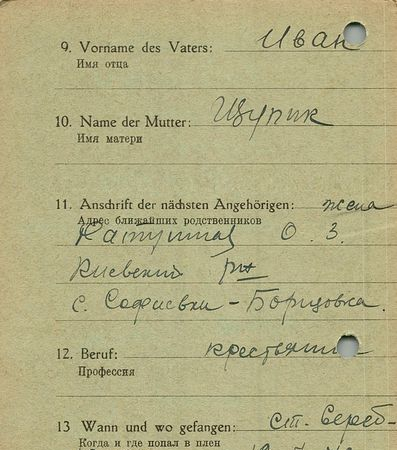 9. Vorname des Vaters: Иван
Имя отца
10. Name der Mutter: Щупик
Имя матери
11. Anschrift der nächsten Angehörigen: жена
Адрес ближайших родственников
О. З.
Киевский рн
с. Софиевки - Борщовка.
12. Beruf:
Профессия
13 Wann und wo gefangen: ст. Сереб-
Когда и где попал в плен